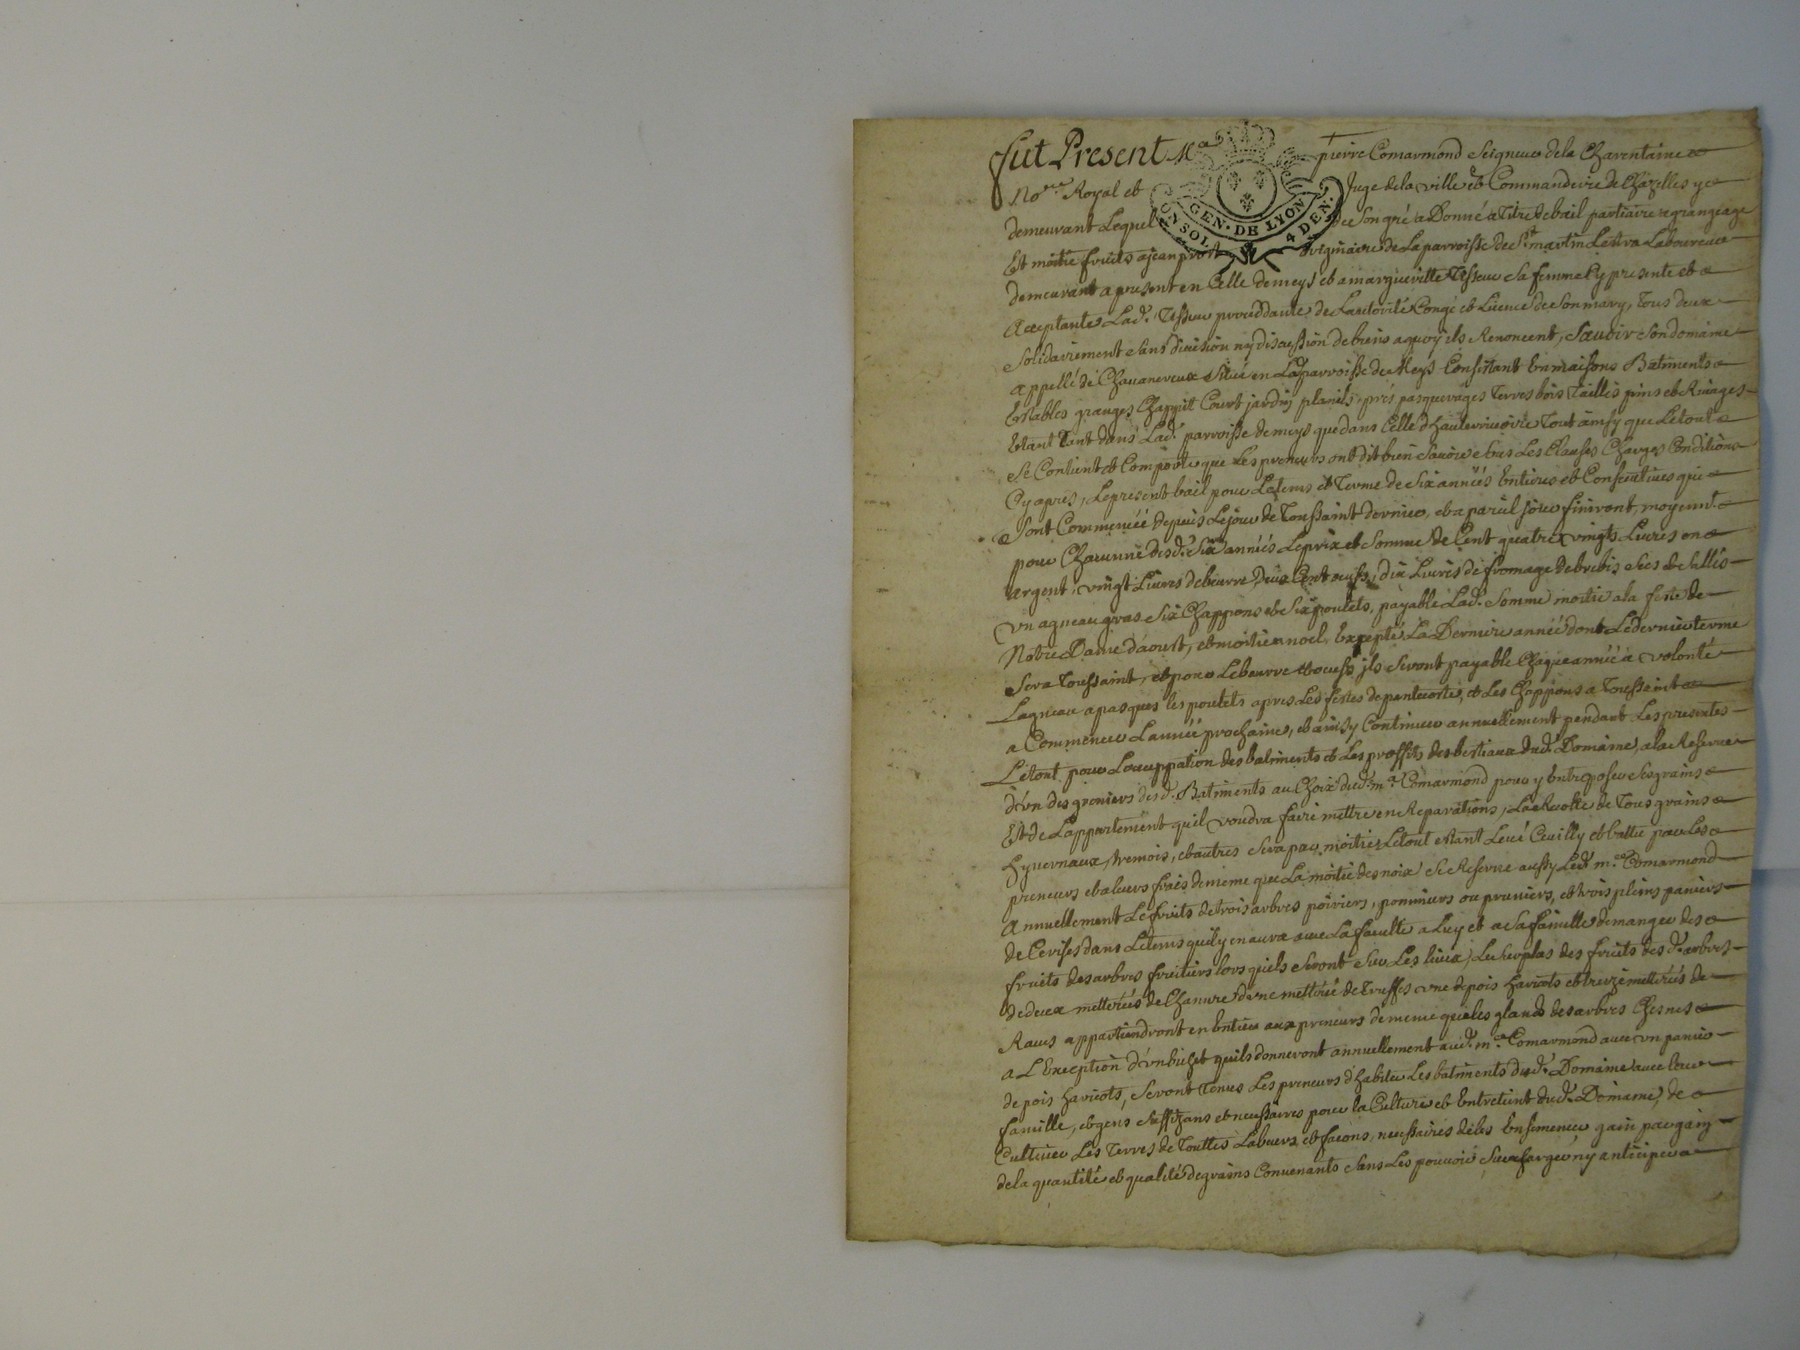 Fut Present Me pierre Comarmond Seigneur de la Charentaine
Nore Royal et Juge de la ville et Commanderie de Chazelles y
demeurant Lequel de Son gré a Donné a Titre de bail partiaire a grangeage
GEN · DE LYON
UN SOL 4 DEN ·
Et moitié fruits a jean originaire de La parroisse de St martin Lestra Laboureur
demeurant a present en Celle de meys et a margueritte Tisseur Sa femme Cy presente et
Aceptante Lad. Tisseur proceddante de Lautorité Congé et Licence de Son mary, Tous deux
Solidairement Sans division ny discussion de biens a quoy ils Renoncent, Scavoir Son domaine
appellé de Situé en Lad parroisse de Meys Consistant En maisons Batiments
Estables granges Chappit Court jardin plaisis, prés pasquerages Terres bois Taillis pins et Rivages
Estant Tant dans Lad. parroisse de meys que dans Celle d'hauterivoire Tout ainsy que Le tout
Se Contient et Comporte que Les preneurs ont dit bien Scavoir et sous Les Clauses Charges Conditions
Cy apres, Le present bail pour Le tems et Terme de Six années Entieres et Consecutives qui
Sont Commencé depuis Le jour de Toussaint dernier, et a pareil jour finiront, moyennt
pour Chacunne desd. Six années Le prix et Somme de Cent quatre vingts Livres en
argent, vingt Livres de beurre, Deux Cent œufs, dix Livres de fromage de brebis Secs et Sallés
Un agneau gras Six Chappons et Six poulets, payable Lad. Somme moitié a la feste de
Notre Dame d'aoust, et moitié a noel, Excepté La Derniere année dont Le dernier terme
Sera Toussaint, et pour Le beurre et oeufs, ils Seront payable Chaque année a volonté
Lagneau a pasques les poulets apres Les festes de pentecoste, et Les Chappons a Toussaint
a Commencer L'année prochaine, et ainsy Continuer annuellement pendant Les presentes
Le tout, pour Loccuppation des batiments et Les proffits des bestiaux dud. Domaine, a la Reserve
d'un des greniers desd. Batiments au Choix dud. me Comarmond pour y Entreposer Ses grains
Et de Lappartement quil voudra faire mettre en Reparations, La Recolte de Tous grains
hyvernaux, tremois, et autres Sera par moitié Le tout estant Levé Cueilly et battu par Les
preneurs et a leurs frais de meme que La moitié des noix Se Reserve aussy Led. me Comarmond
Annuellement Le fruits de trois arbres poiriers, pommiers ou pruniers, et trois pleins paniers
de Cerises dans Le tems quil y en aura avec La faculté a Luy et a Sa famille de manger des
fruits des arbres fruitiers lors quils Seront Sur Les lieux, Le Surplus des fruits desd. arbres
de deux metterées de Chanvre d'une metterée de Truffes une de pois haricots et treize metterées de
Raves appartiendront en Entier aux preneurs de meme que les glands des arbres Chesnes
a L'Exception d'un bichet quils donneront annuellement aud. me Comarmond avec un panier
de pois haricots, Seront Tenus Les preneurs d'habiter Les batiments dud. Domaine avec leur
famille, et gens Suffizans et necessaires pour la Culture et Entretient dud. Domaine, de
Cultiver Les Terres de Touttes Labeurs et facons, necessaires de les Ensemencer gain par gain
de la quantité et qualité de grains Convenants Sans Les pouvoir Surcharger ny anticiper